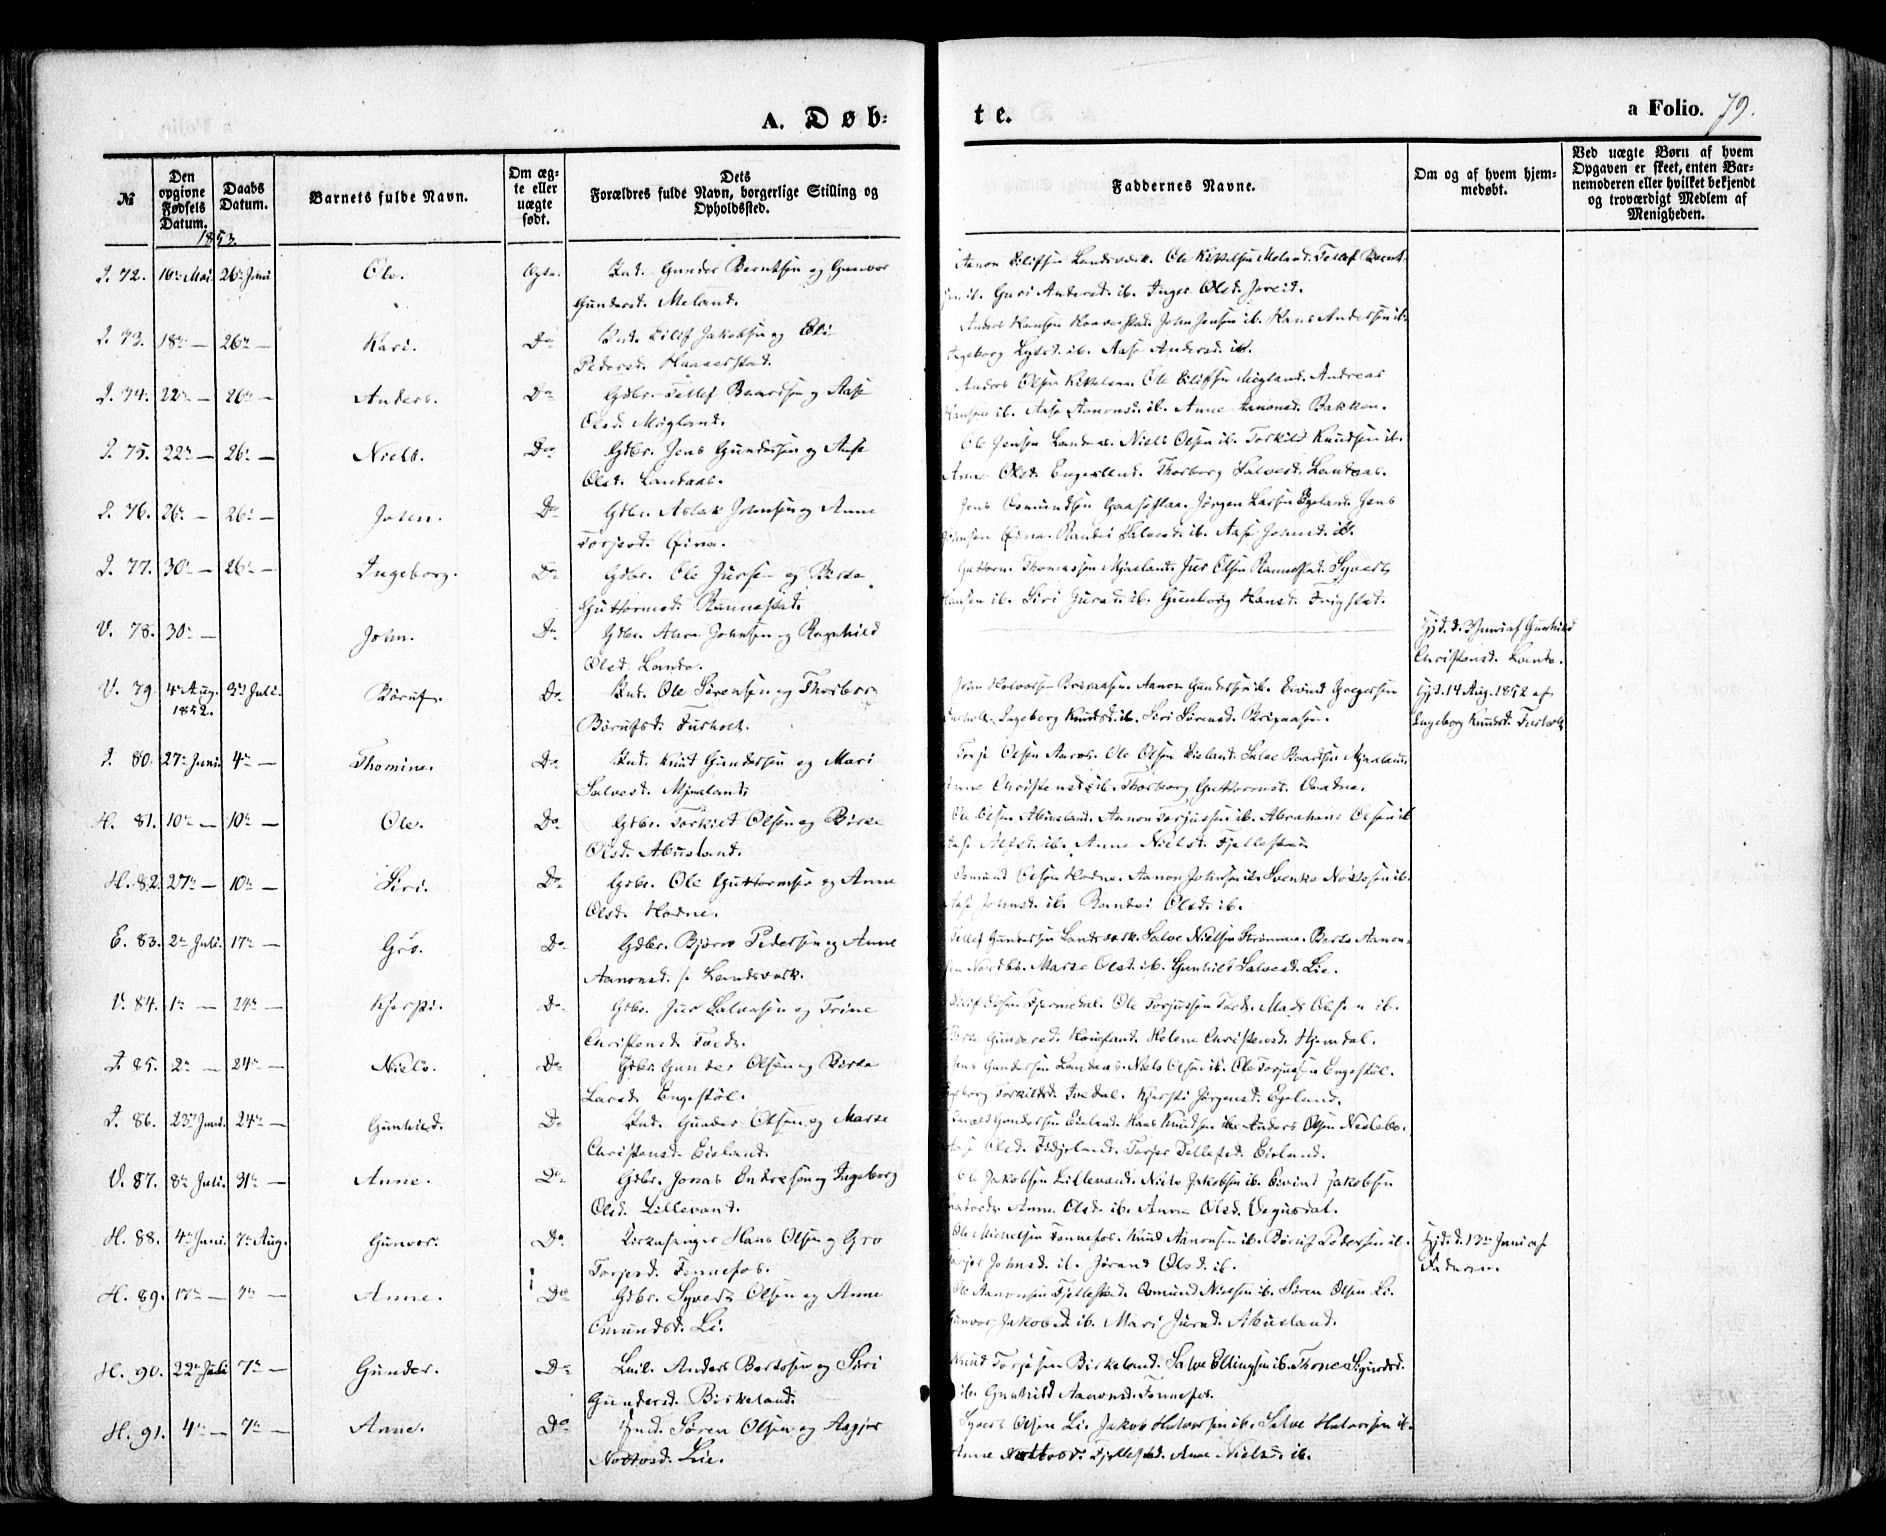 A. Døb-
te.
a Folio. 79.
№
Den opgivne Fødsels Datum.
Daabs Datum.
Barnets fulde Navn.
Om ægte eller uægte født.
Dets Forældres fulde Navn, borgerlige Stilling og Opholdssted.
Faddernes Navne.
Om og af hvem hjemmedøbt.
Ved uægte Børn af hvem Opgaven er skeet, enten Barnemoderen eller hvilket bekjendt og troværdigt Medlem af Menigheden.
1853.
72. 16 Mai 26 Juni Ole. Ind. Gunder Berntsen og Gunvor
Gundersd. Meland.
Aanon Eilifsen Landsværk. Ole Kittelsen Moland. Tellef Bernt-
sen ib. Guri Andersd. ib. Inger Olsd. Joreid.
73. 18 — 26 — Kari. Do Ind. Eilif Jakobsen og Eli
Pedersd. Haaverstad.
Anders Hansen Haaverstad. John Jensen ib. Hans Andersen ib.
Ingeborg ib. Aase Andersd. ib.
74. 22 — 26 — Anders. Do Gdbr. Tellef Baardsen og Aase
Olsd. Møgland.
Anders Olsen Ole Eilifsen Møgland. Andreas
Hansen ib. Aase Aanonsd. ib. Anne Aanonsd. Bakken.
75. 22 — 26 — Niels. Do Gdbr. Jens Gundersen og Aase
Olsd. Landaas.
Ole Jensen Landaas. Niels Olsen ib. Torkild Knudsen ib.
Anne Olsd. Thorborg Salvesd. Landaas.
76. 26 — 26 — John. Do Gdbr. Aslak Johnsen og Anne
Torjesd. Øina.
Jens Osmundsen Jørgen Larsen Egeland. Jens
Johnsen Øina. Randvi Salvesd. ib. Aase Johnsd. ib.
77. 30 — 26 — Ingeborg. Do Gdbr. Ole Jursen og Berte
Guttormsd. Rannestad.
Guttorm Thomassen Mjaaland. Jur Olsen Rannestad. Syvert
Hansen ib. Siri Jursd. ib. Gunborg Hansd. Frigstad.
V. 78. 30 — John. Do Gdbr. Johnsen og Ragnhild
Olsd. Lande.
Hjd. d. Juni af Gunhild
Christensd. Lande.
V. 79. 4 Aug. 1852. 3 Juli. Børuf. Do Ind. Ole Sørensen og Thorbor
Børufsd. Furholt.
John Halvorsen Aanon Gundersen ib. Eivind Gregersen
Furholt. Ingeborg Knudsd. ib. Siri Sørensd.
Hjd. 14 Aug. 1852 af
Ingeborg Knudsd. Furholt
80. 27 Juni 4 — Thomine. Do Ind. Knut Gundersen og Mari
Salvesd. Mjaaland.
Torje Olsen Ole Olsen Eieland. Salve Baardsen Mjaaland.
Anne Christensd. ib. Thorborg Guttormsd.
H. 81. 10 — 10 — Ole. Do Gdbr. Torkild Olsen og Berte
Olsd. Abusland.
Ole Olsen Abusland. Aanon Torjussen ib. Abraham Olsen ib.
Aase ib. Anne Nielsd. Fjellestad
H. 82. 27 — 10 — Siri. Do Gdbr. Ole Guttormsen og Anne
Olsd. Hodne.
Osmund Olsen Hodne. Aanon Johnsen ib. Svenke ib.
Aase Johnsd. ib. Randvi Olsd. ib.
E. 83. 2 Juli. 17 — Gro. Do Gdbr. Bjørn Pedersen og Anne
Aanonsd. Landsværk.
Tellef Gundersen Landsværk. Salve Nielsen Strømme. Berte Aanon-
sen Marte Olsd. ib. Gunhild Salvesd. Lie.
V. 84. 1 — 24 — Kjersti. Do Gdbr. Jur Salvesen og Trine
Christensd.
Eilif Olsen Fjermedal. Ole Torjussen Mads Olsen ib.
Berte Gundersd. Hougland. Helene Christensd. Hjemdal.
85. 2 — 24 — Niels. Do Gdbr. Gunder Olsen og Berte
Larsd. Engestøl.
Jens Gundersen Landaas. Niels Olsen ib. Ole Torjussen Engestøl.
Ingeborg Torkildsd. Ivedal. Kjersti Jørgensd. Egeland.
86. 23 Juni. 24 — Gunhild. Do Ind. Gunder Olsen og Marte
Christensd. Eieland.
Gundersen Eieland. Hans Knudsen ib. Anders Olsen Nedlebø.
Olsd. Tellefsd. Eieland.
V. 87. 8 Juli. 31 — Anne. Do Gdbr. Jonas Endresen og Ingeborg
Olsd. Lillevand.
Ole Jakobsen Lillevand. Niels Jakobsen ib. Eivind Jakobsen
Anne Olsd. ib. Anne Olsd. Vegusdal.
H. 88. 4 Juni. 7 Aug. Gunvor. Do Kirkesanger Hans Olsen og Gro
Torjesd. Fennefos.
Ole Michelsen Fennefos. Knud Aanonsen ib. Børuf Pedersen ib.
Johnsd. ib. Jørand Olsd. ib.
Hjd. d. 13 Juni af
Faderen.
H. 89. 17 — 7 — Anne. Do Gdbr. Syvert Olsen og Anne
Omundsd. Li.
Ole Aanonsen Fjellestad. Osmund Nielsen ib. Søren Olsen Li.
Gunvor Jakobsd. ib. Mari Jursd. Abusland.
H. 90. 22 Juli 7 — Gunder. Do Anders Bertesen og Siri
Gundersd. Birkeland.
Knud Torjesen Birkeland. Salve Ellingsen ib. Thone Sigurdsd.
ib. Gunhild Aanonsd. Fennefos.
H. 91. 4 — 7 — Anne. Do Ind. Søren Olsen og Asgjer
Nottosd. Lie.
Syvert Olsen Li. Jakob Halvorsen ib. Salve Halvorsen ib.
Anne Nottosd. Fjellestad. Anne Nielsd. ib.